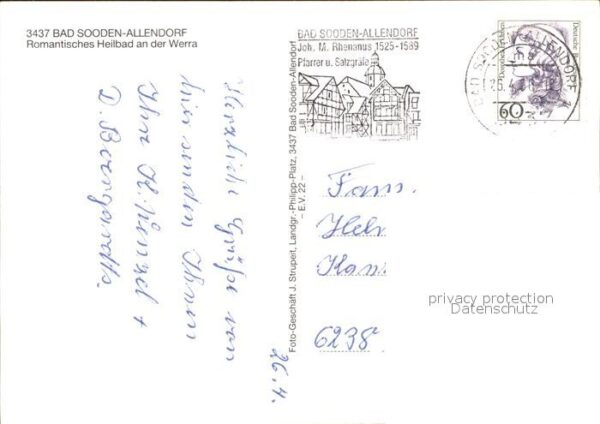 3437 BAD SOODEN-ALLENDORF
Romantisches Heilbad an der Werra
BAD SOODEN-ALLENDORF
Joh. M. Rhenanus 1525-1589
Pfarrer u. Salzgräfe
BAD SOODEN-ALLENDORF
Deutsche Bundespost
60
26.4.
Herzliche Grüße von
hier senden Ihnen
Ihre
Foto-Geschäft J. Strupeit, Landgr.-Philipp-Platz, 3437 Bad Sooden-Allendorf
– E.V. 22 –
Fam.
6238
privacy protection
Datenschutz